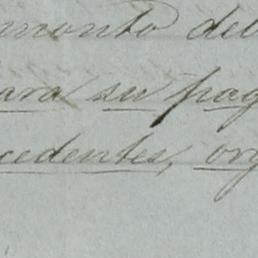 monto del
ara su pag
cedentes, org